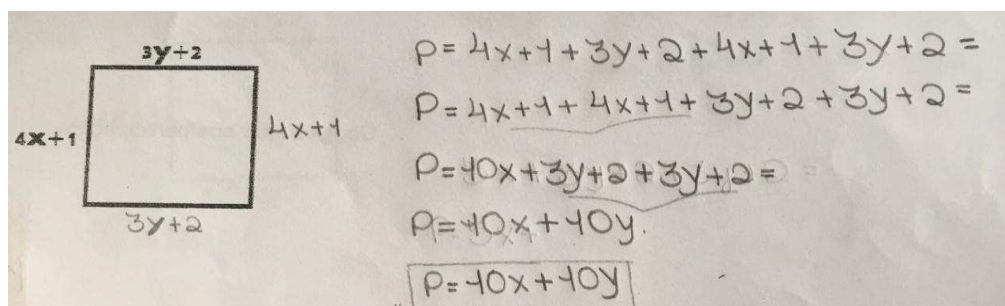 3y+2
4x+1
4x+1
3y+2
P= 4x+1+3y+2+4x+1+3y+2=
P=4x+1+4x+1+3y+2+3y+2=
P=10x+3y+2+3y+2=
P=10x+10y.
P=10x+10y